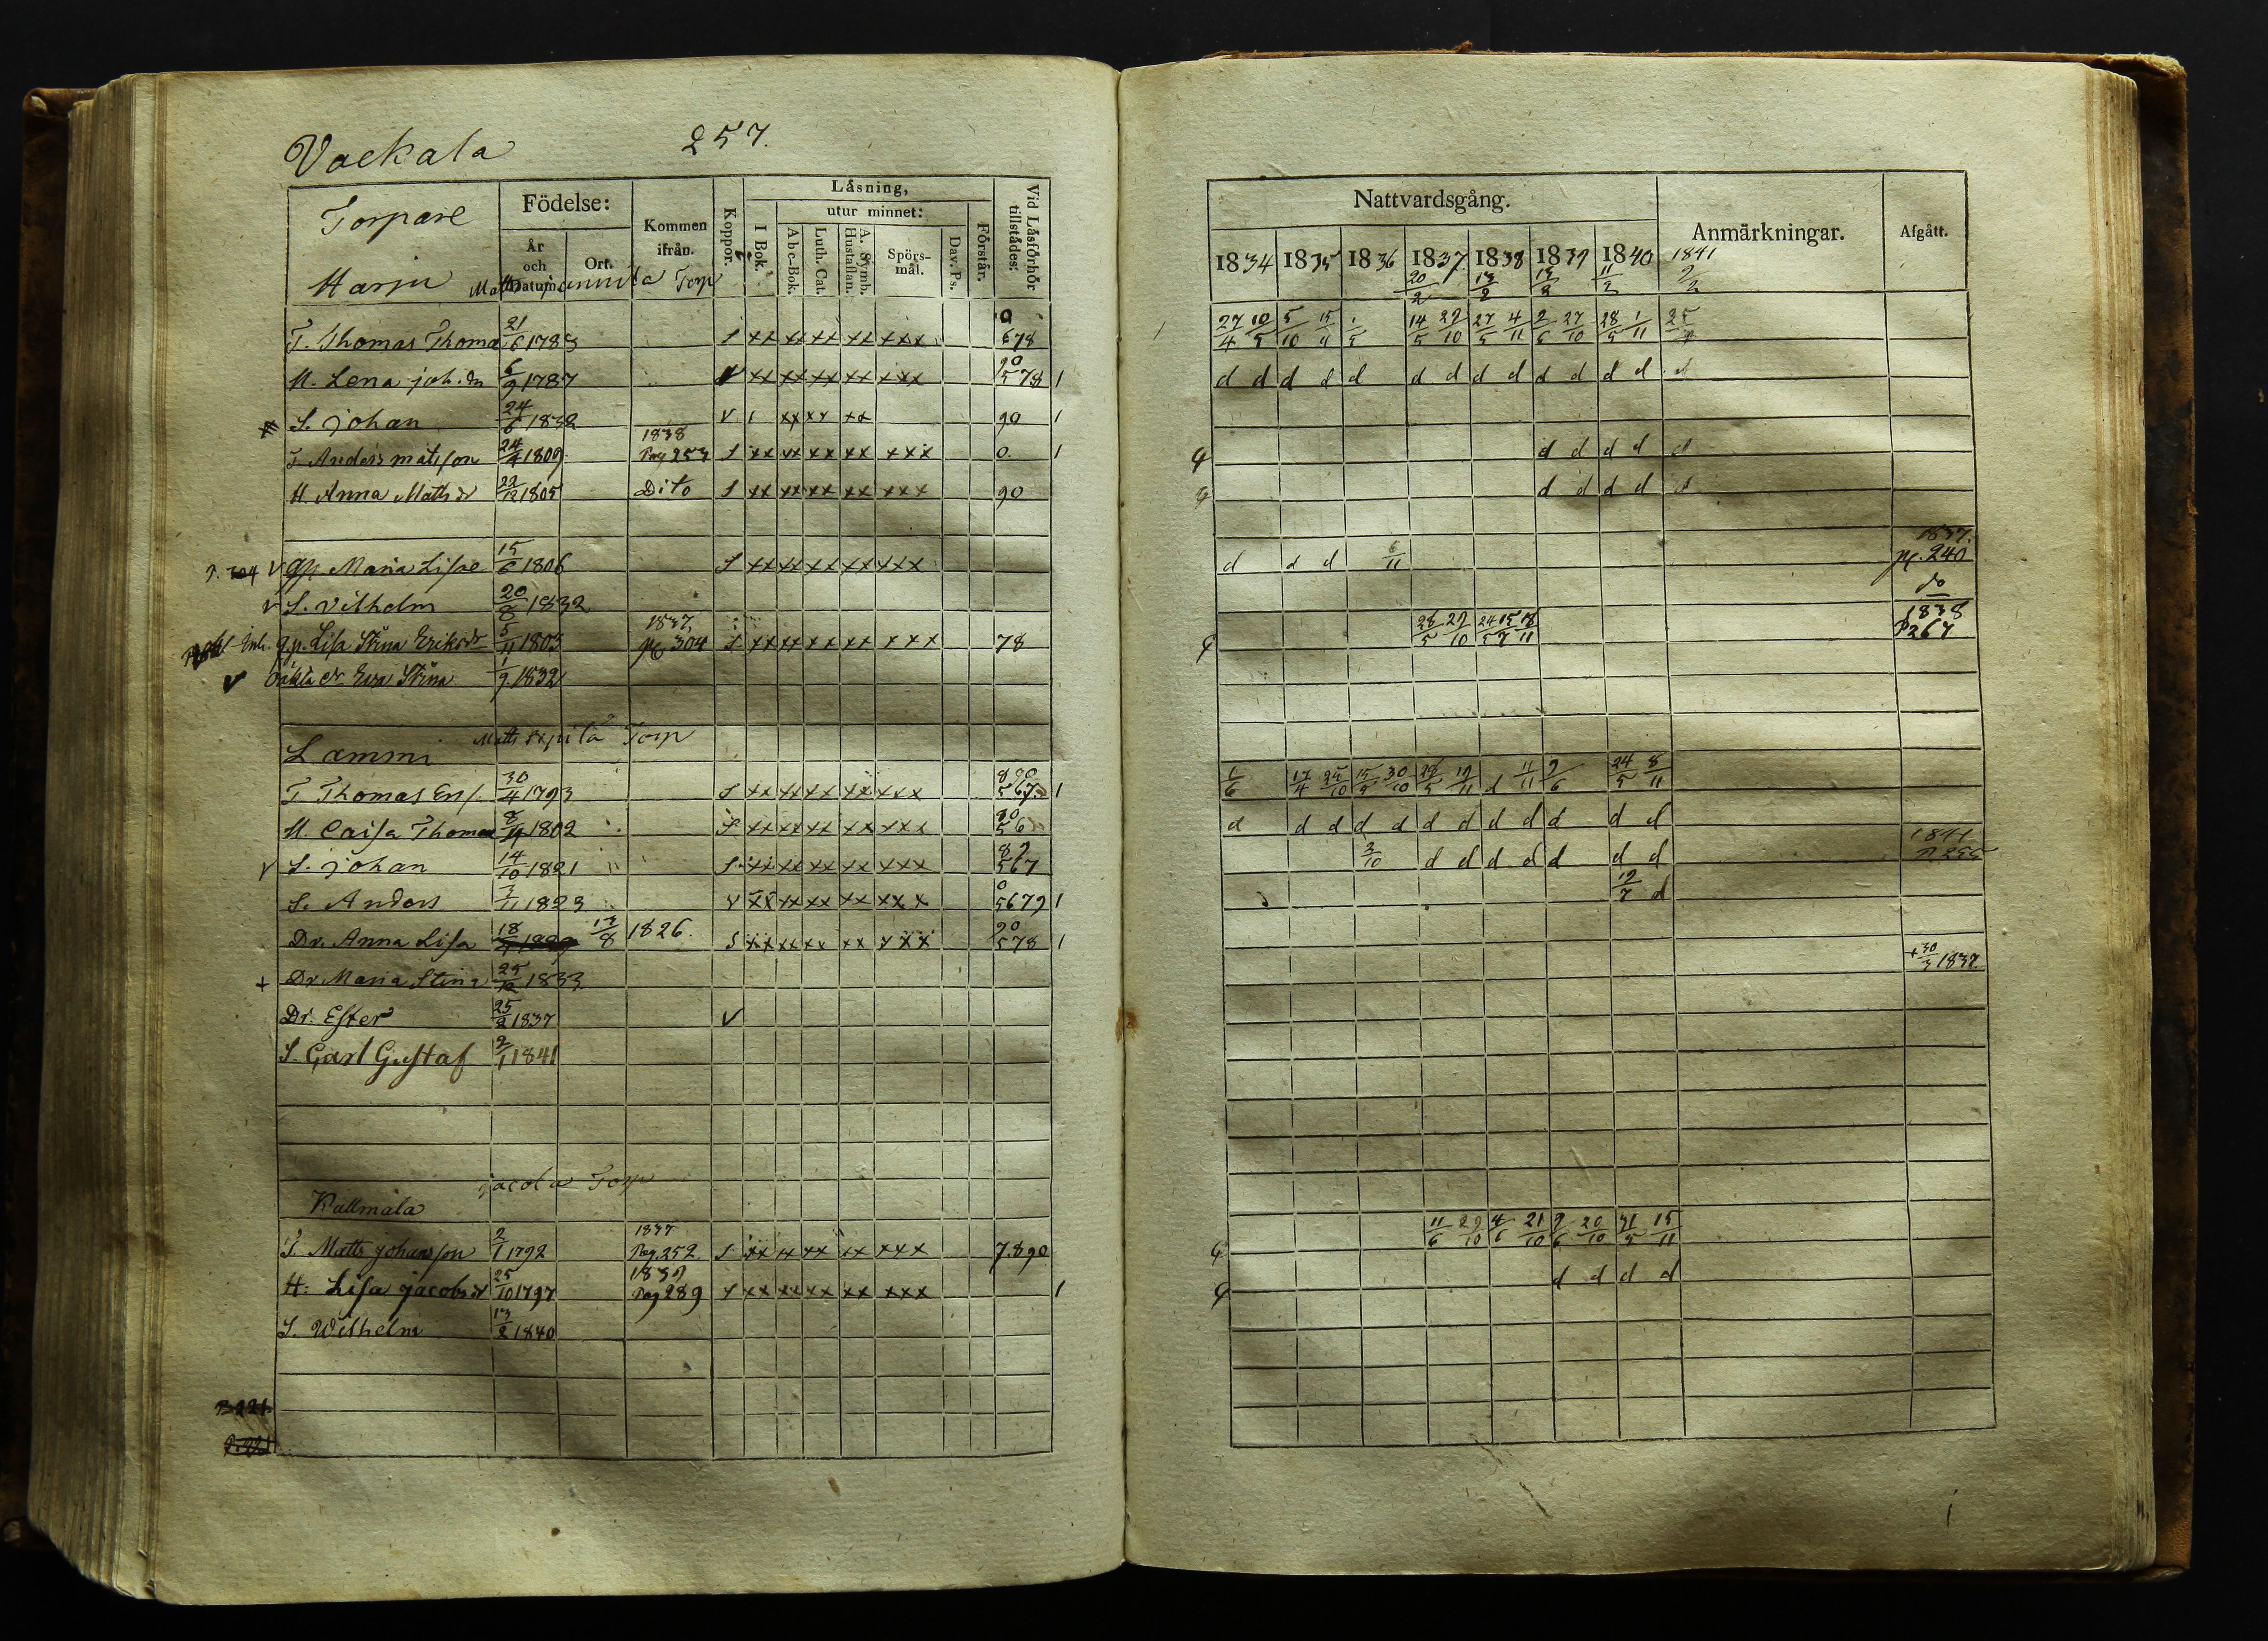 Vaekala 257.
Torpare
Födelse:
År och Datum.
Ort.
Kommen ifrån.
Koppor.
Låsning,
I Bok.
utur minnet:
Abc-Bok.
Luth. Cat.
A. Symb. Hustaflan.
Spörs-mål.
Dav. Ps.
Förstår.
Vid Låsförhör tillstådes:
Nattvardsgång.
1834 1835 1836 1837 1838 1839 1840 1841
Anmärkningar.
Afgått.
Harju Torp
20/2 13/2 13/2 11/2 2/2
T. Thomas Thoma 21/6 1783 S xx xx xx xx xxx 0 678 27/4 10/5 5/10 15/4 1/5 14/5 29/10 27/5 4/11 2/6 27/10 28/5 1/11 25
H. Lena joh.dr 6/9 1787 V xx xx xx xx xxx 90 578 1 d d d d d d d d d d d d d d
S. johan 24/6 1832 V 1 xx xx xx 90 1
T Anders matsson 24/4 1809 1838 Pag 253 S xx xx xx xx xxx 0. 1 d d d d d
H. Anna Matts dr 22/12 1805 Dito S xx xx xx xx xxx 90 d d d d d
V qp. Maria Lisa 15/6 1806 S xx xx xx xx xxx d d d 6/11 1837. pg. 240
v S. Vilhelm 20/8 1832 do
Inh. q.p. Lisa Stina Eriksdr 5/11 1803 1837, pg 304 S xx xx xx xx xxx 78 28/5 29/10 24/5 15/7 18/11 1838 P 267
V oäkta dr Eva Stina 1/9 1832
Lammi Matts Torp
T Thomas Ers. 30/4 1793 S xx xx xx xx xxx 890 567 1 1/6 17/4 25/10 15/5 30/10 28/5 19/11 d 11/11 9/6 24/5 8/11
H. Caisa Thomas 8/11 1802 S xx xx xx xx xxx 90 56 d d d d d d d d d d d d
V S. johan 14/10 1821 S xx xx xx xx xxx 89 567 3/10 d d d d d d d 1841 p 255
S. Anders 3/11 1823 V xx xx xx xx xxx 0 5679 1 12/7 d
Dr. Anna Lisa 13/8 1826. S xx xx xx xx xxx 90 578 1
+ Dr. Maria Stina 25/12 1833 + 30/3 1837.
Dr. Ester 25/2 1837 V
S. Carl Gustaf 2/1 1841
Kallmala jacola Torp
T. Matts johansson 2/1 1792 1837 Pag. 252 S xx xx xx xx xxx 7.890 11/6 29/10 4/6 21/10 9/6 20/10 31/5 15/11
H: Lisa jacobs dr 25/10 1797 1839 Pag 289 S xx xx xx xx xxx 1 d d d d
S. Wilhelm 13/2 1840
P 221
P. 221